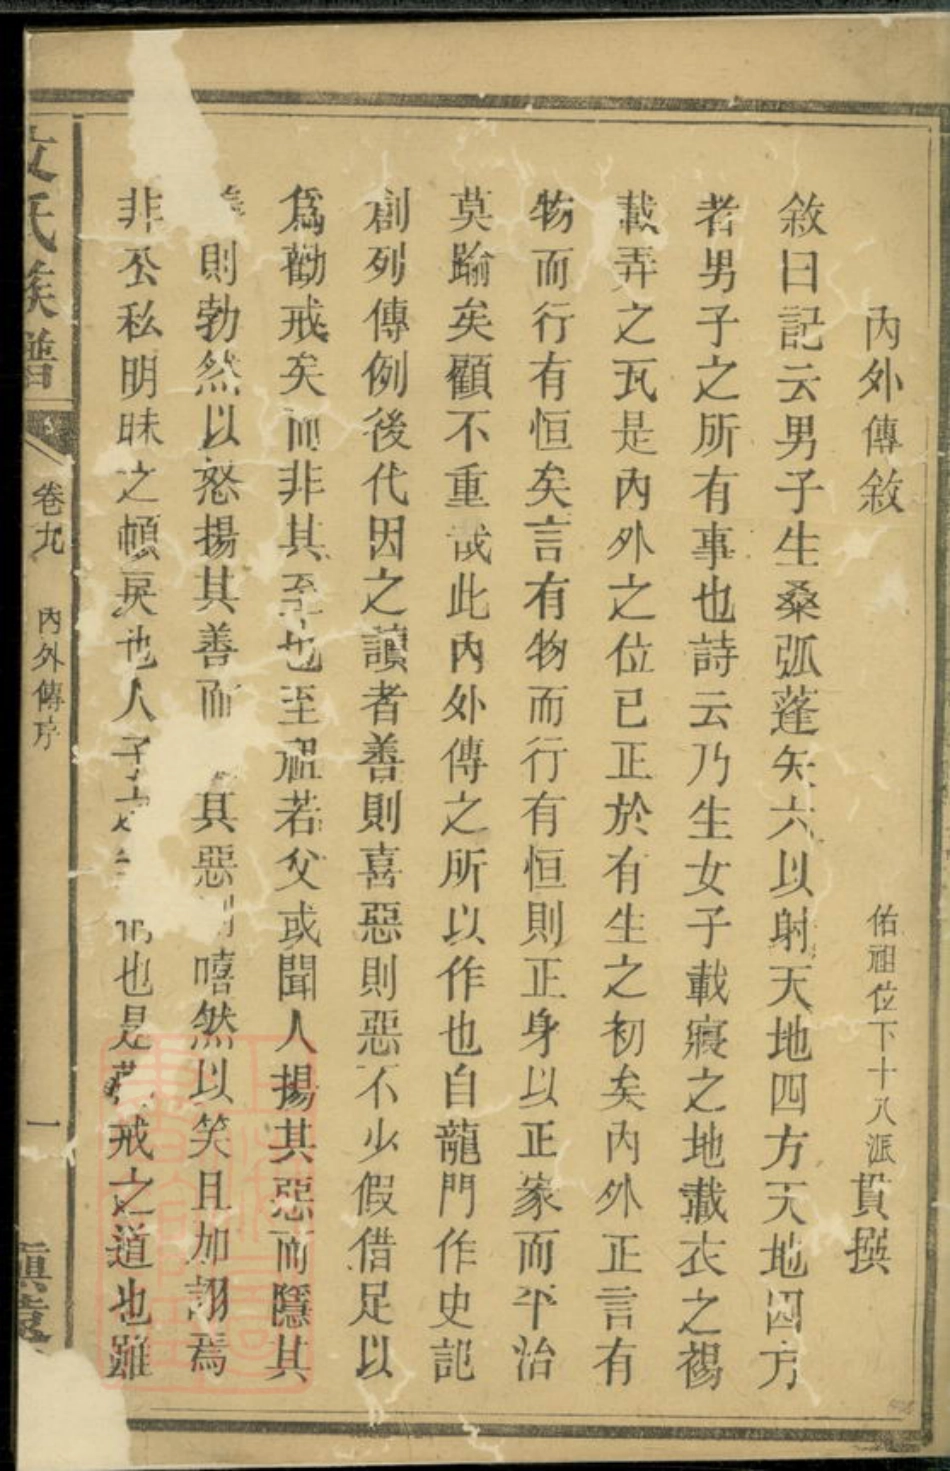 內外傳敘
佑祖位下十八派貫撰
敘曰記云男子生桑弧蓬矢六以射天地四方天地四方
者男子之所有事也詩云乃生女子載寢之地載衣之裼
載弄之瓦是內外之位已正於有生之初矣內外正言有
物而行有恒矣言有物而行有恒則正身以正家而平治
莫踰矣顧不重哉此內外傳之所以作也自龍門作史記
創列傳例後代因之讀者善則喜惡則惡不少假借足以
為勸戒矣而非其至也至祖若父或聞人揚其惡而隱其
則勃然以怒揚其善而其惡則嘻然以笑且加詡焉
非公私明昧之頓戾也人子之也是戒之道也雖
氏族譜
卷九
內外傳序
一